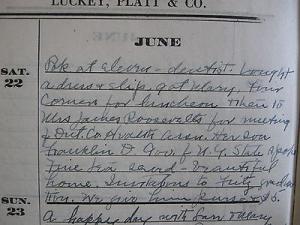 LUCKEY, PLATT & CO.
JUNE
SAT.
22
Pk at eleven - dentist. Bought
a dress & slip. got Mary. Four
Corners for luncheon then to
Mrs James Roosevelts for meeting
of Dut. Co. Health assn. Her son
Franklin D Gov. of N.Y. State spoke
Fine tea served - beautiful
home. Invitations to Fritz graduation
We give him purse $
SUN.
23
A happy day with Mary